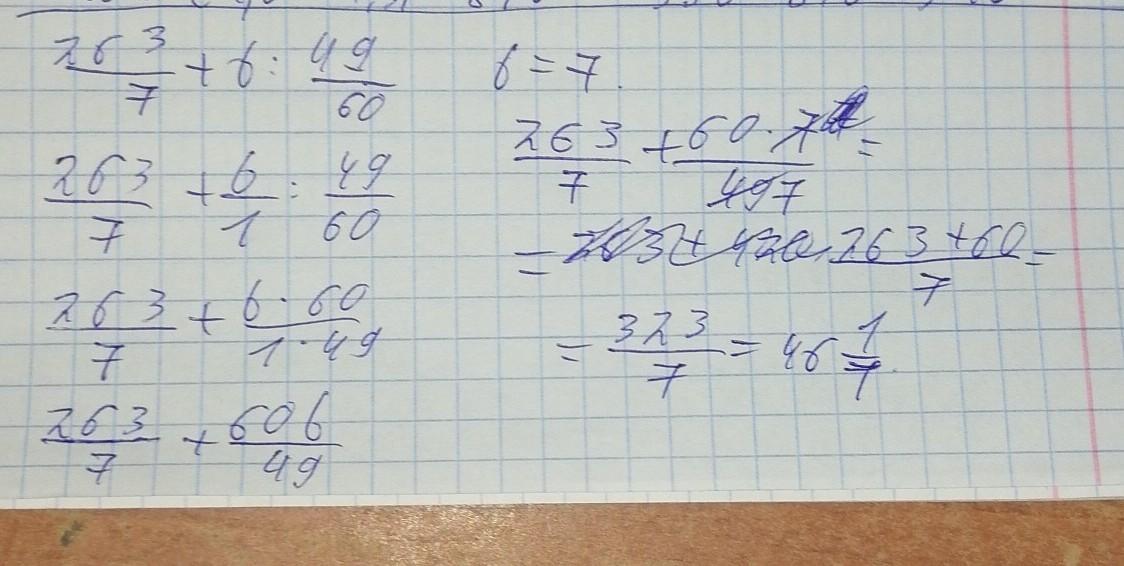 263/7 + b : 49/60
263/7 + b/1 : 49/60
263/7 + b · 60/1 · 49
263/7 + 60b/49
b = 7.
263/7 + 60 · 7/497 =
= 263 + 420 263 + 60/7 =
= 323/7 = 46 1/7.